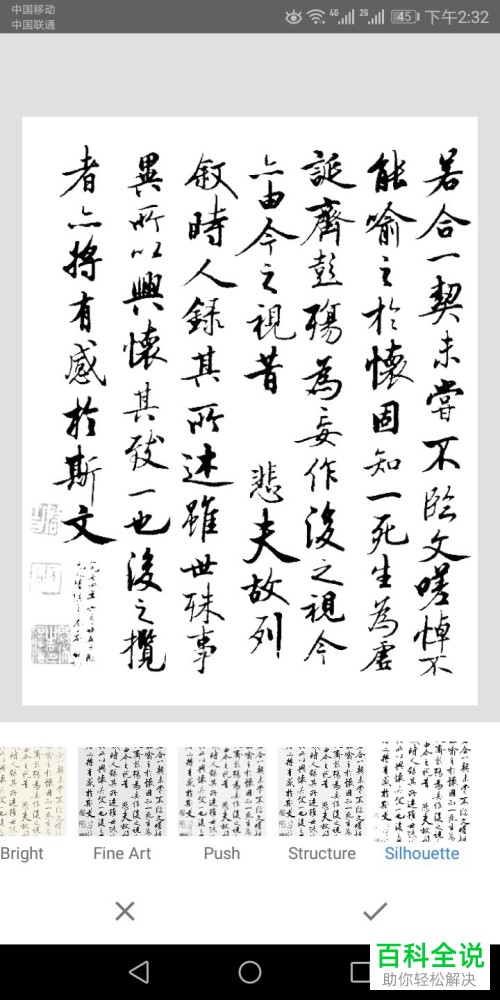 中国移动
中国联通
4G
2G
45
下午2:32
若合一契未嘗不臨文嗟悼不
能喻之於懷固知一死生為虛
誕齊彭殤為妄作後之視今
亦由今之視昔 悲夫故列
叙時人録其所述雖世殊事
異所以興懷其致一也後之攬
者亦將有感於斯文
Bright
Fine Art
Push
Structure
Silhouette
百科全说
助你轻松解决